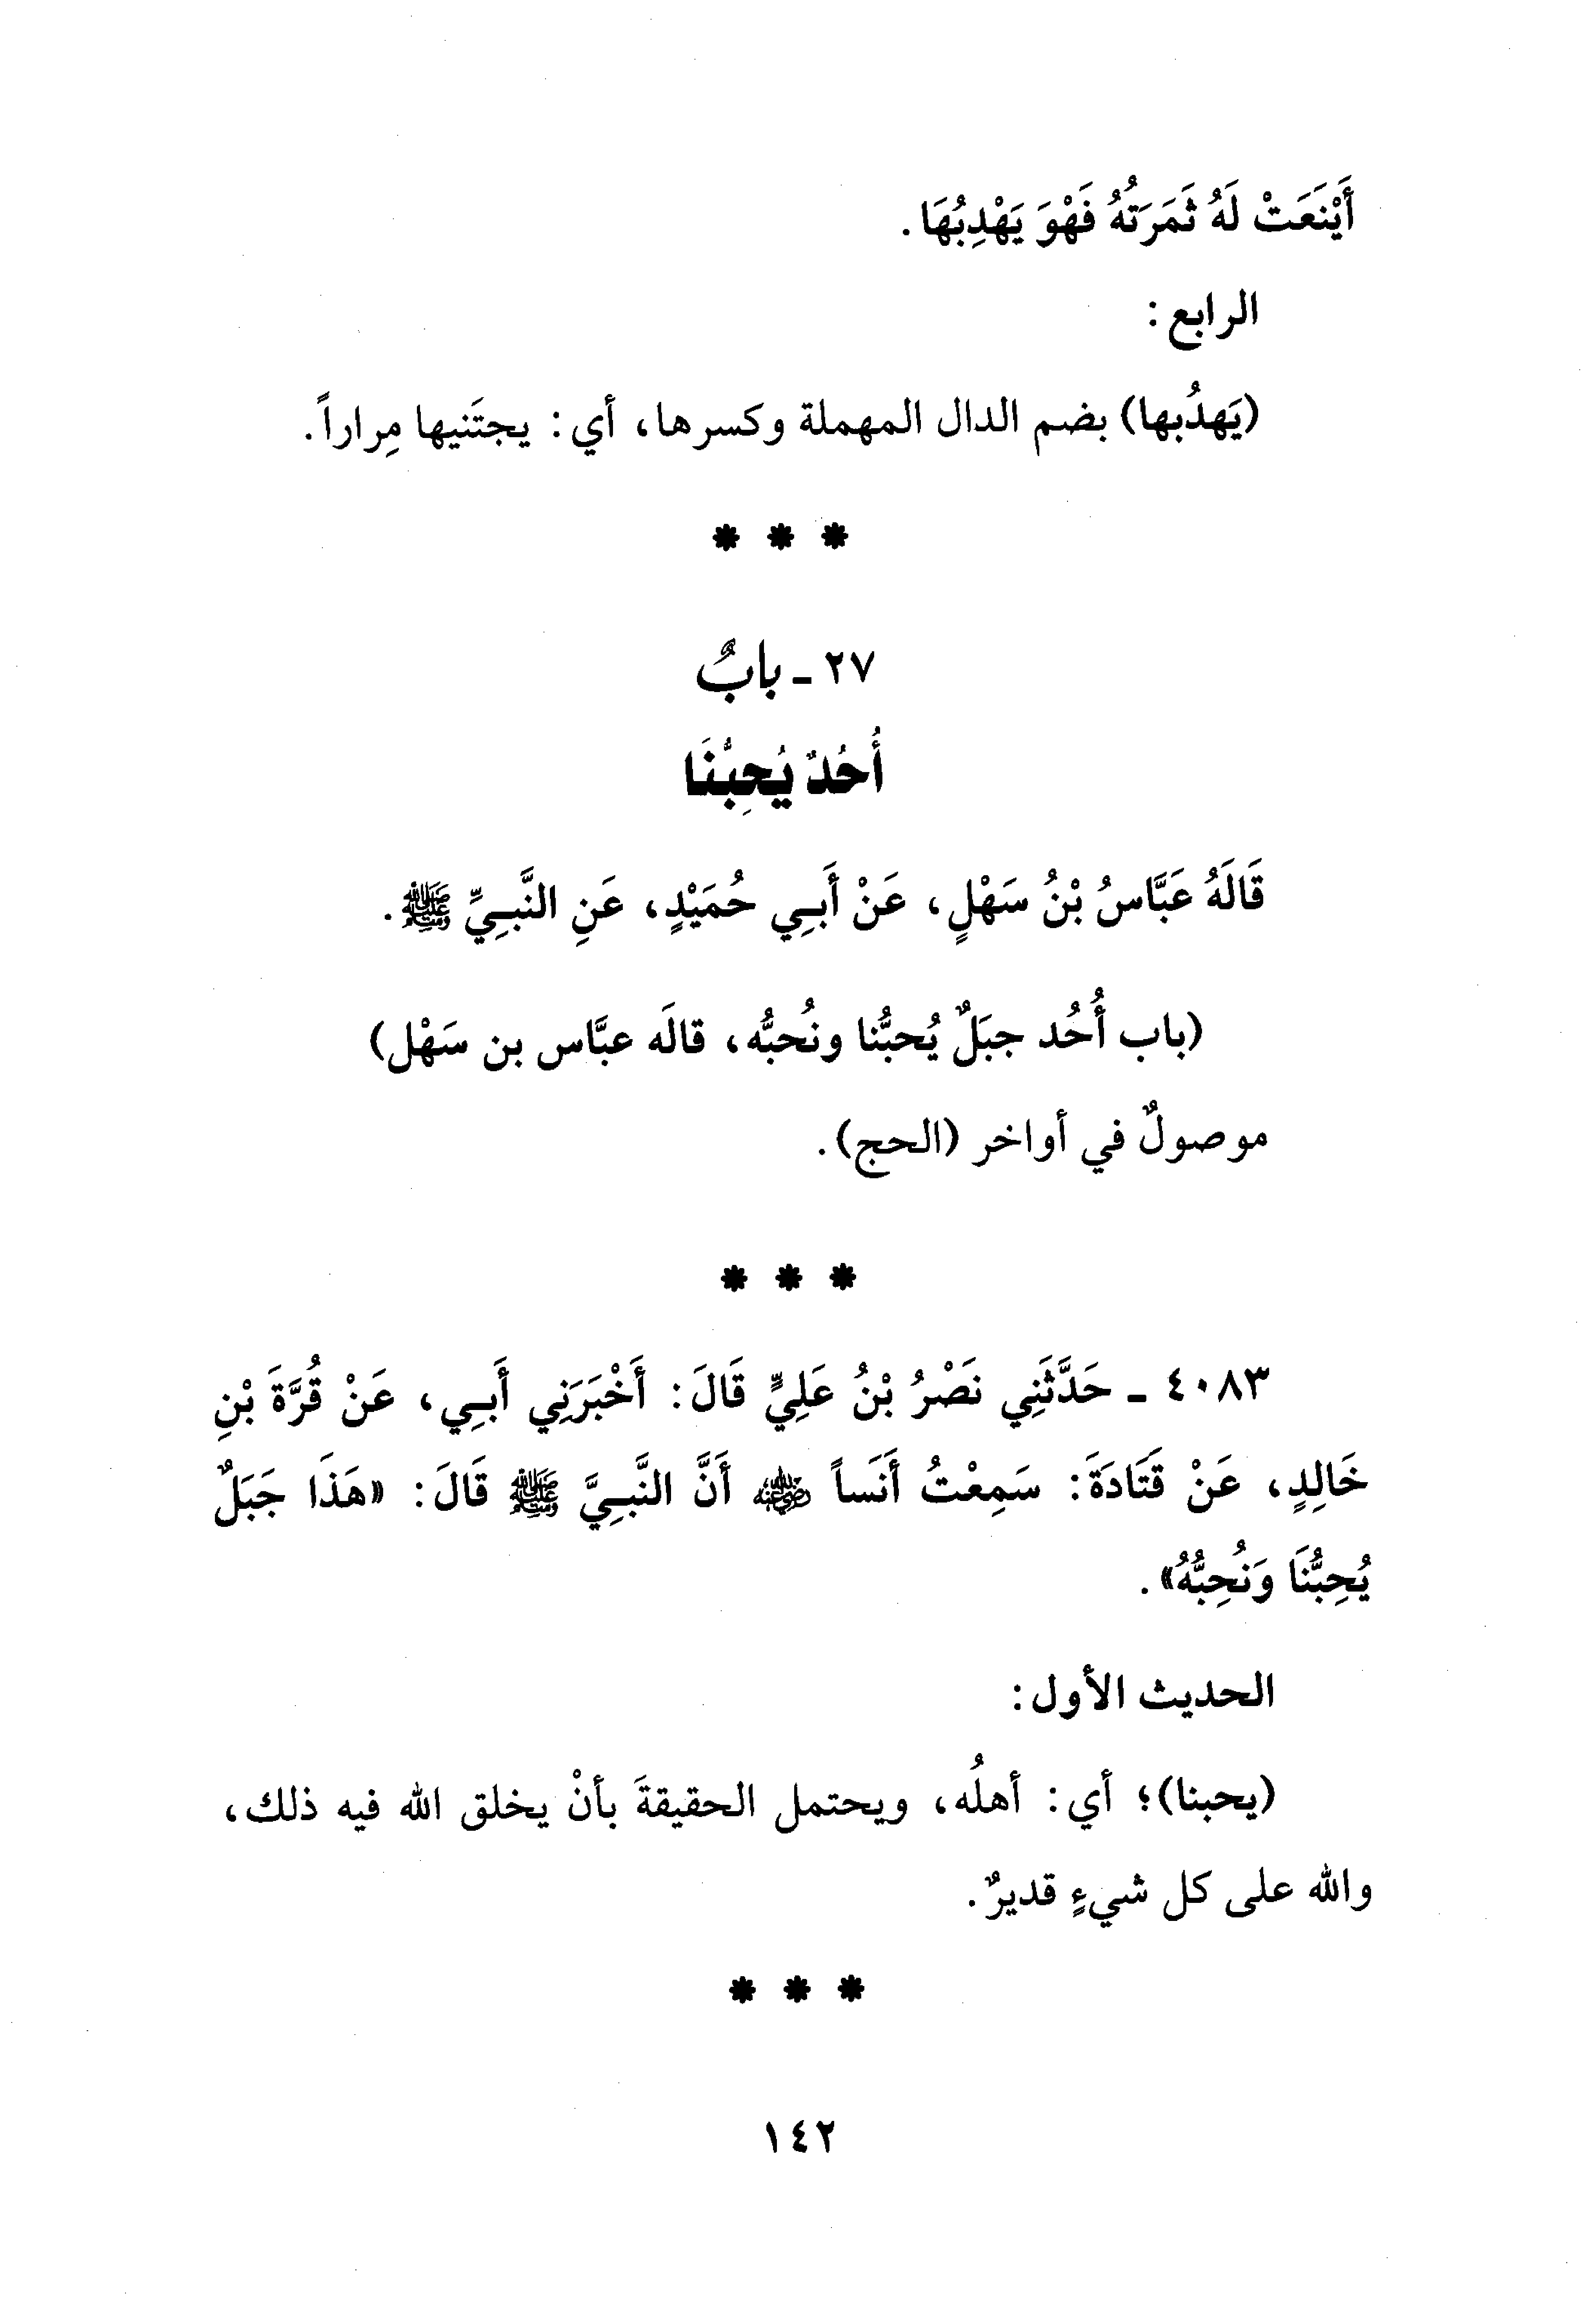 أَيْنَعَتْ لَهُ ثَمَرَتُهُ فَهْوَ يَهْدِبُهَا.
الرابع:
(يَهدُبها) بضم الدال المهملة وكسرها، أي: يجتَنيها مِراراً.
* * *
٢٧ ـ بابٌ
أُحُدٌ يُحِبُّنَا
قَالَهُ عَبَّاسُ بْنُ سَهْلٍ، عَنْ أَبِي حُمَيْدٍ، عَنِ النَّبِيِّ ﷺ.
(باب أُحُد جبَلٌ يُحبُّنا ونُحبُّه، قالَه عبَّاس بن سَهْل)
موصولٌ في أواخر (الحج).
* * *
٤٠٨٣ ـ حَدَّثَنِي نَصْرُ بْنُ عَلِيٍّ قَالَ: أَخْبَرَنِي أَبِي، عَنْ قُرَّةَ بْنِ
خَالِدٍ، عَنْ قَتَادَةَ: سَمِعْتُ أَنَساً رضي الله عنه أَنَّ النَّبِيَّ ﷺ قَالَ: «هَذَا جَبَلٌ
يُحِبُّنَا وَنُحِبُّهُ».
الحديث الأول:
(يحبنا)؛ أي: أهلُه، ويحتمل الحقيقةَ بأنْ يخلق الله فيه ذلك،
والله على كل شيءٍ قديرٌ.
* * *
١٤٢